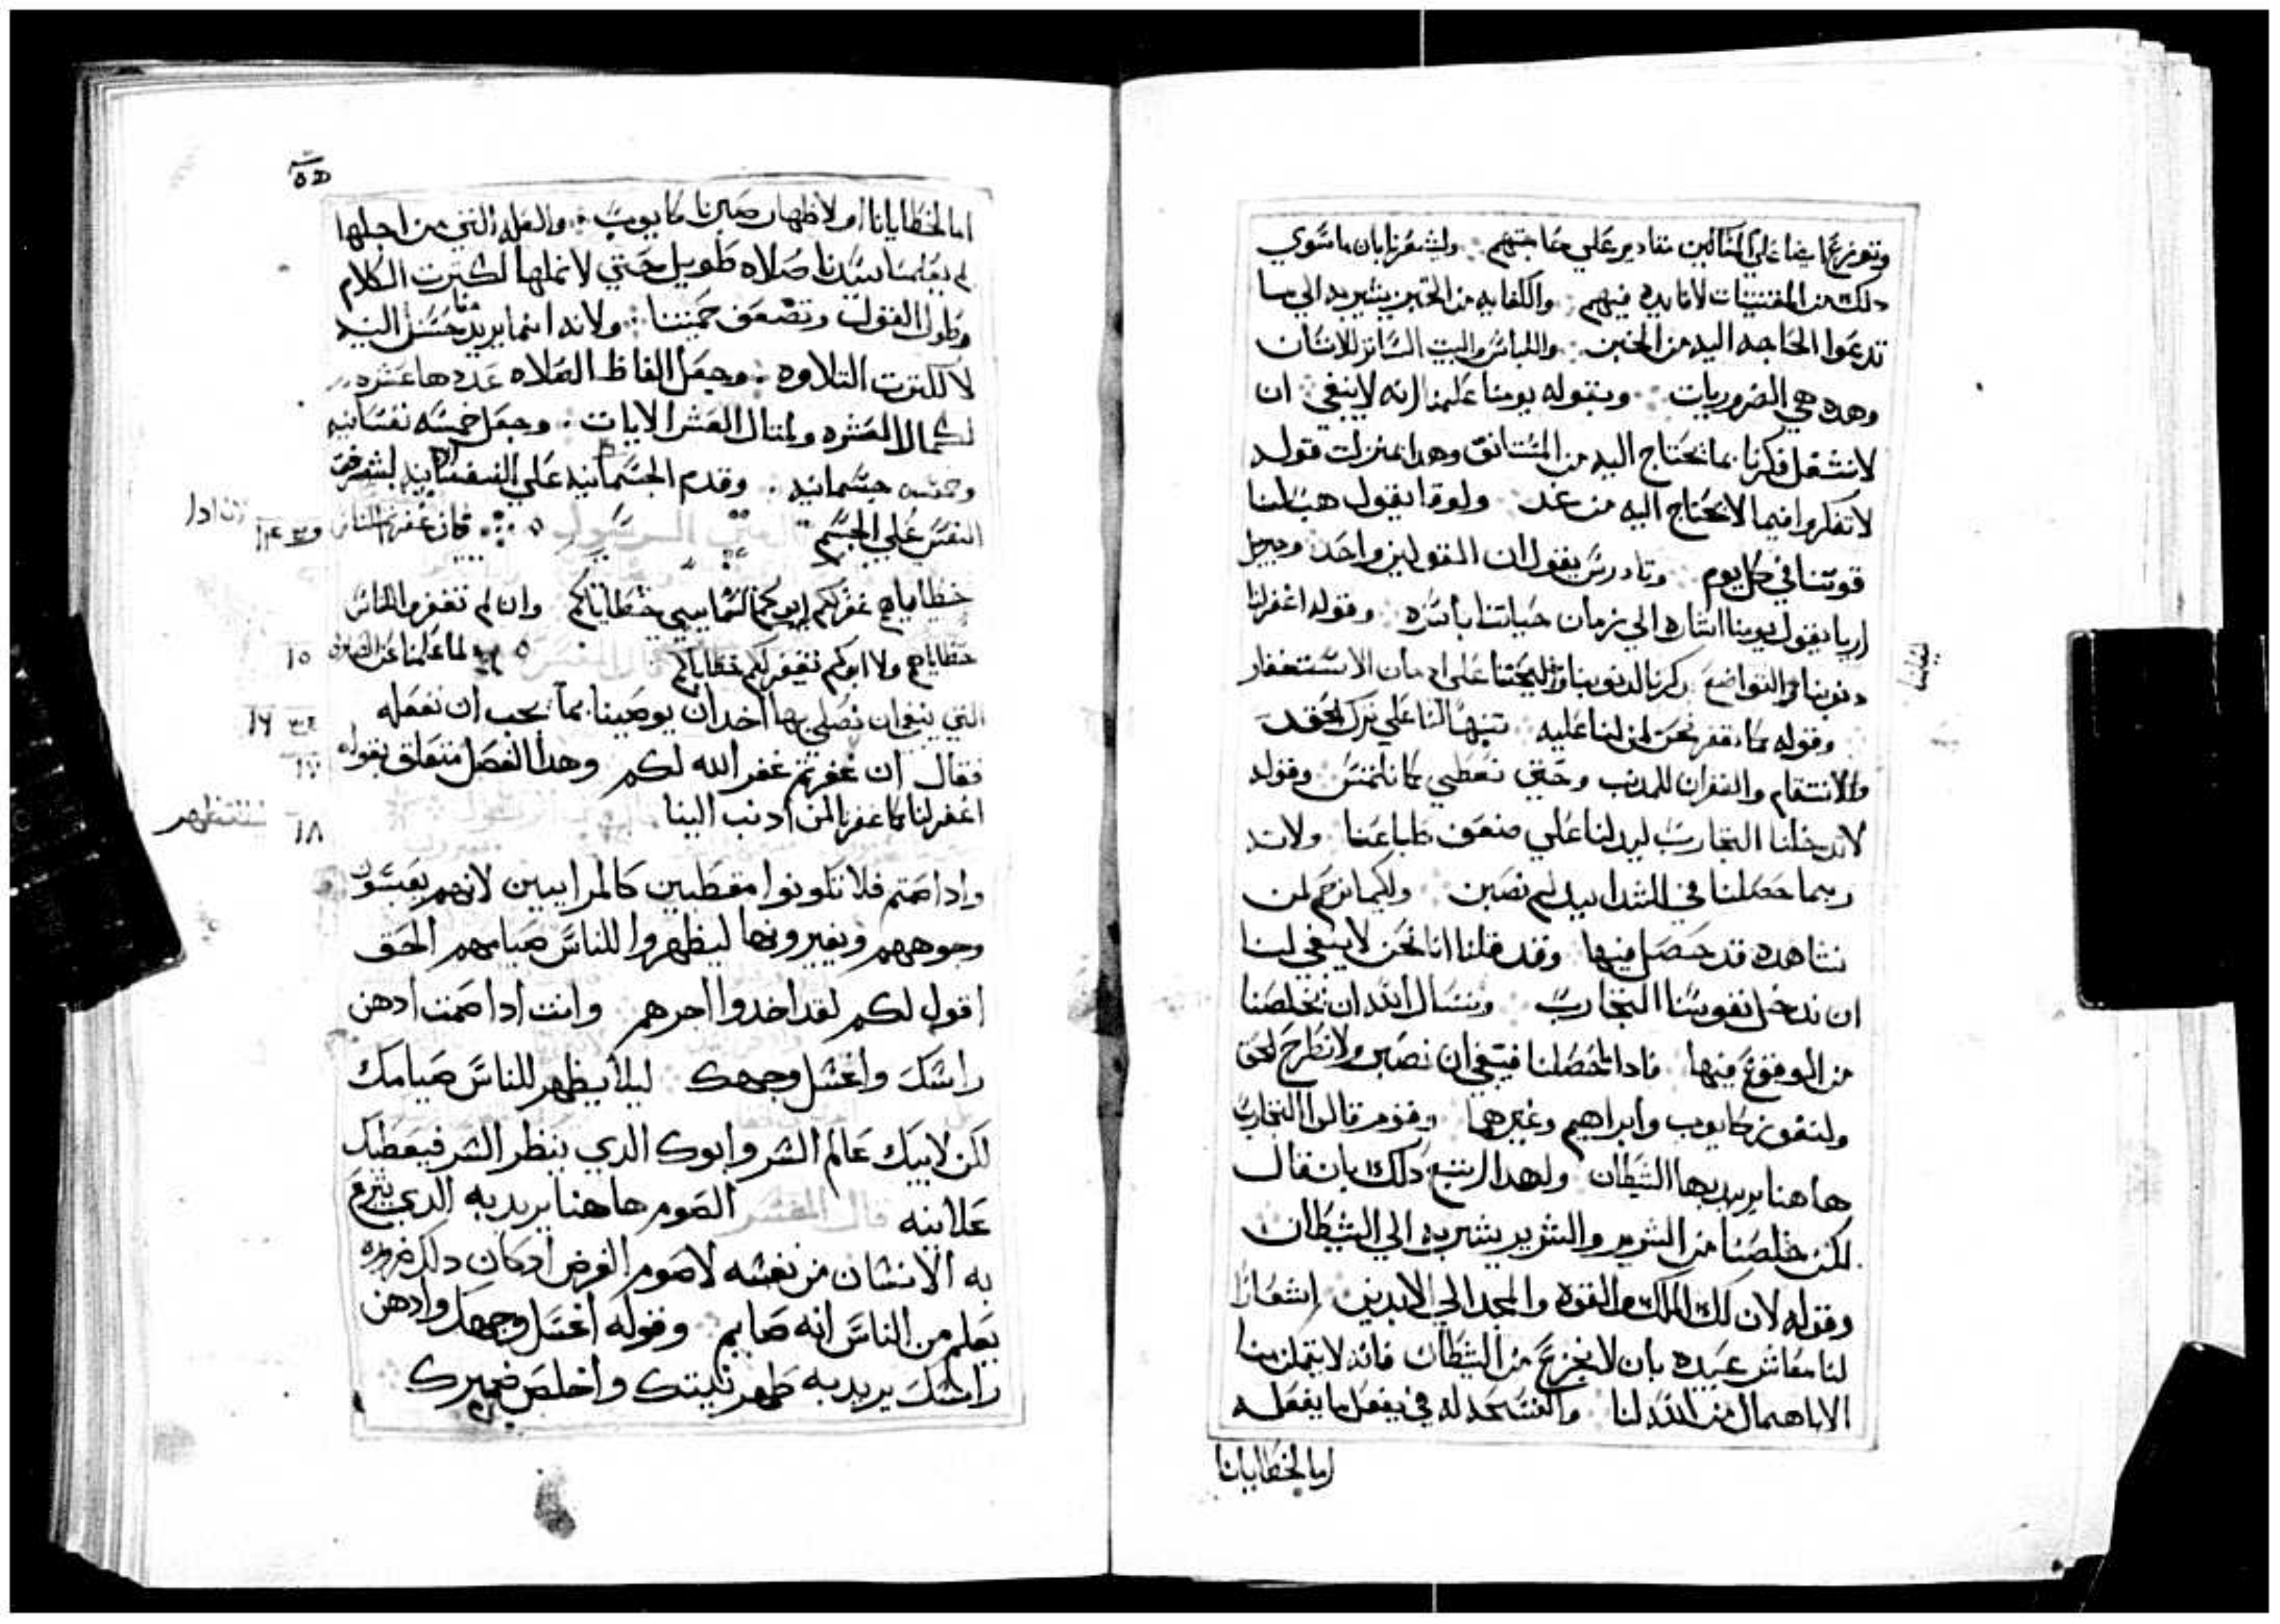 دلك من المقتنيات لا فايده فيهم والكفايه من الخبز يشير به الي ما
تدعوا الحاجه اليه من الخبز واللباس والبيت الساتر للانسان
وهده هي الضروريات وبقوله يومنا علمنا انه لا ينبغي ان
لانشغل فكرنا بما نحتاج اليه من المستانف وهدا بمنزلت قوله
لا تفكروا فيما لا يحتاج اليه من غد ولوقا يقول هب لنا
قوتنا في كل يوم وتادرس يقول ان القولين واحد
اريا يقول يومنا اشاره الي زمان حياتنا باسره وقوله اغفر لنا
دنوبنا
وقوله كما نغفر نحن لمن لنا عليه تنبيها لنا علي ترك الحقد
والانتقام والغفران للمدنب وحتي نعطي كما نلتمس وقوله
لا تدخلنا التجارب ليدلنا علي ضعف طباعنا ولانه
ربما حصلنا في الشدايد لم نصبر ولكيما نرحم لمن
نشاهده قد حصل فيها وقد قلنا انا نحن لا ينبغي لنا
ان ندخل نفوسنا التجارب ونسال الله ان يخلصنا
من الوقوع فيها فادا حصلنا فينبغي ان نصبر
ولنفوز كايوب وابراهيم وغيرهما وقوم قالوا التجارب
هاهنا يريد بها الشيطان ولهدا اتبع دلك بان قال
لكن خلصنا من الشرير والشرير يشير به الي الشيطان
وقوله لان لك الملك والقوة والمجد الي الابدين اشعارا
لنا معاشر عبيده بان لا نجزع من الشيطان فانه لا يتمكن منا
الا باهمال من الله لنا والفسحه له في يفعل ما يفعله
اما لخطايانا
اما لخطايانا او لاظهار صبرنا كايوب والعله التي من اجلها
لم يعلمنا سيدنا صلاه طويل حتي لا نملها لكترت الكلام
وطول القول وتضعف حميتنا ولانه انما يريد منا حسن النيه
لا لكترت التلاوه وجعل الفاظ الصلاه عددها عشره
لكمال العشره ولمتال العشر الايات وجعل خمسه نفسانيه
وخمسه جسمانيه وقدم الجسمانيه علي النفسانيه لشرف
النفس علي الجسم فان غفرتم للناس
خطاياهم غفر لكم ابوكم السماييي خطاياكم وان لم تغفروا للناس
خطاياهم ولا ابوكم يغفر لكم خطاياكم لما علمنا
١٥
التي ينبغي ان نصلي بها اخد ان يوصينا بما يجب ان نفعله
١٦
فقال ان غفرتم غفر الله لكم وهدا الفصل متعلق بقوله
١٧
اغفر لنا كما غفرنا لمن ادنب الينا
١٨
وادا صمتم فلا تكونوا مقطبين كالمراييين لانهم يعبسون
وجوههم ويغيرونها ليظهروا للناس صيامهم الحق
اقول لكم لقد اخدوا اجرهم وانت ادا صمت ادهن
راسك واغسل وجهك ليلا يظهر للناس صيامك
لكن لابيك عالم السر وابوك الدي ينظر السر فيعطيك
علانيه قال المفسر الصوم هاهنا يريد به الدي يتبرع
به الانسان من نفسه لا صوم الفرض ادكان دلك ضروره
يعلم من الناس انه صايم وقوله اغسل وجهك وادهن
راسك يريد به طهر نيتك واخلص ضميرك